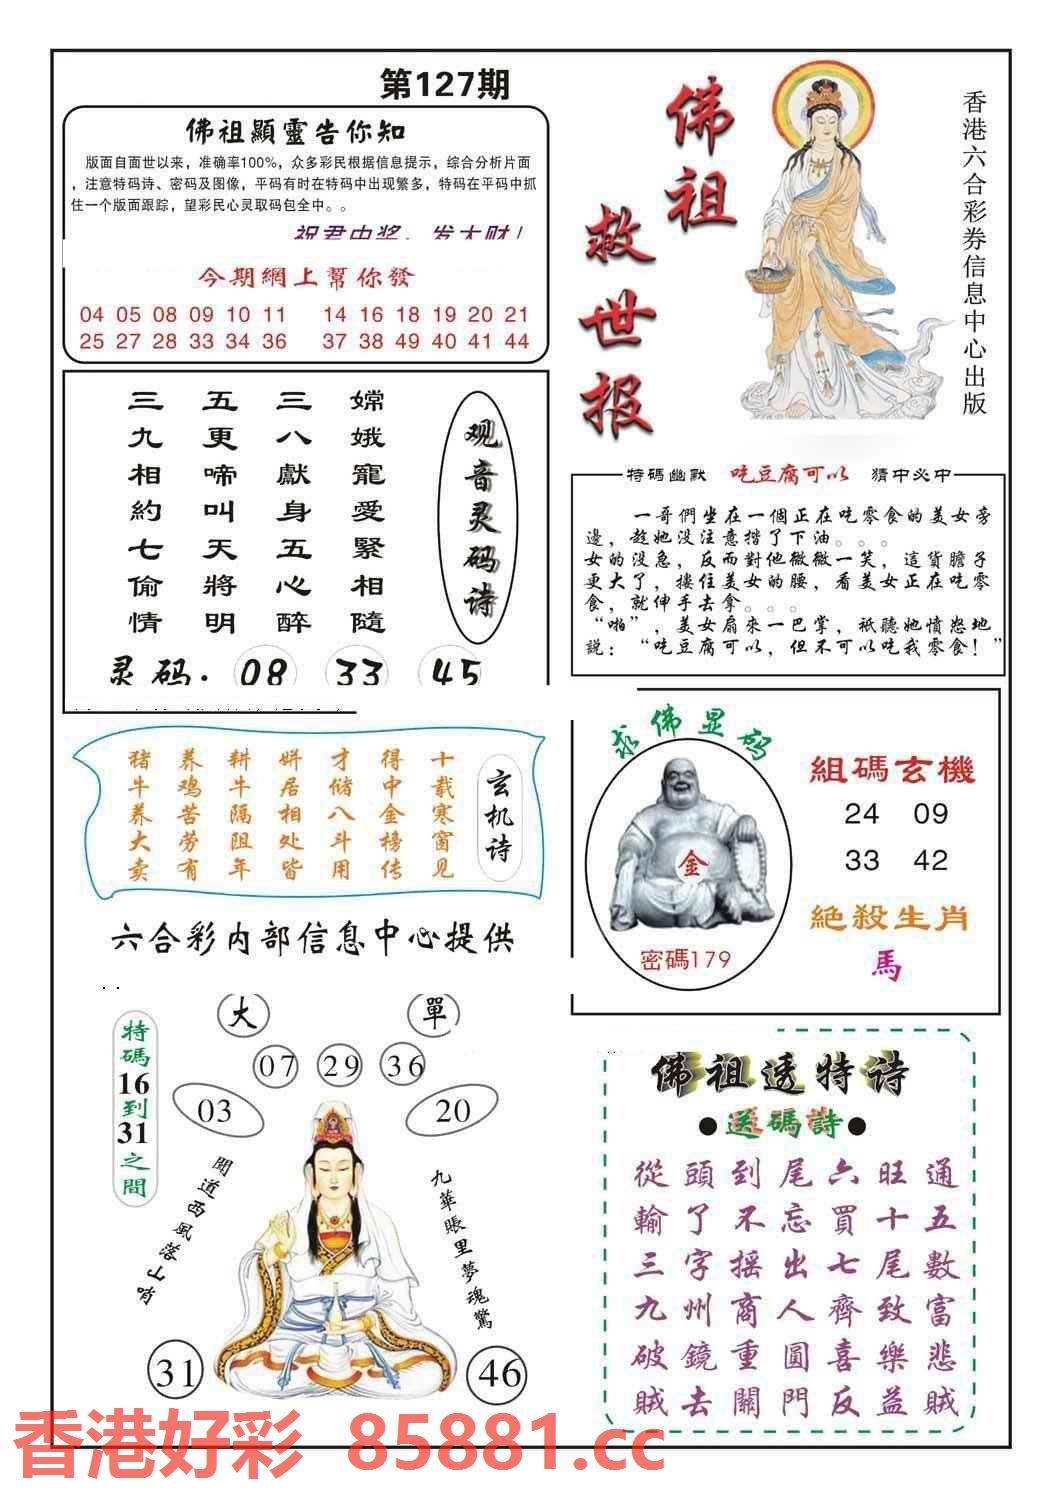 第127期
佛祖顯靈告你知
版面自面世以来，准确率100%，众多彩民根据信息提示，综合分析片面
，注意特码诗、密码及图像，平码有时在特码中出现繁多，特码在平码中抓
住一个版面跟踪，望彩民心灵取码包全中。。
祝君中奖，发大财！
今期網上幫你發
04 05 08 09 10 11 14 16 18 19 20 21
25 27 28 33 34 36 37 38 49 40 41 44
佛祖救世报
香港六合彩券信息中心出版
观音灵码诗
嫦娥寵愛緊相隨
三八獻身五心醉
五更啼叫天將明
三九相約七偷情
灵码：08 33 45
特碼幽默 吃豆腐可以 猜中必中
一哥們坐在一個正在吃零食的美女旁
邊，趁她没注意揩了下油。。。
女的没急，反而對他微微一笑，這貨膽子
更大了，摟住美女的腰，看美女正在吃零
食，就伸手去拿。。。
“啪”，美女扇來一巴掌，衹聽她憤怒地
説：“吃豆腐可以，但不可以吃我零食！”
玄机诗
十载寒窗见
得中金榜传
才储八斗用
姘居相处皆
耕牛隔阻年
养鸡苦劳有
猪牛养大卖
六合彩内部信息中心提供
求佛显码
金
密碼179
組碼玄機
24 09
33 42
絕殺生肖
馬
特碼16到31之間
大 單
07 29 36
03 20
聞道西風落山哨
九華賬里夢魂驚
31 46
佛祖透特诗
●送碼詩●
從頭到尾六旺通
輸了不忘買十五
三字摇出七尾數
九州商人齊致富
破鏡重圓喜樂悲
賊去關門反益賊
香港好彩 85881.cc